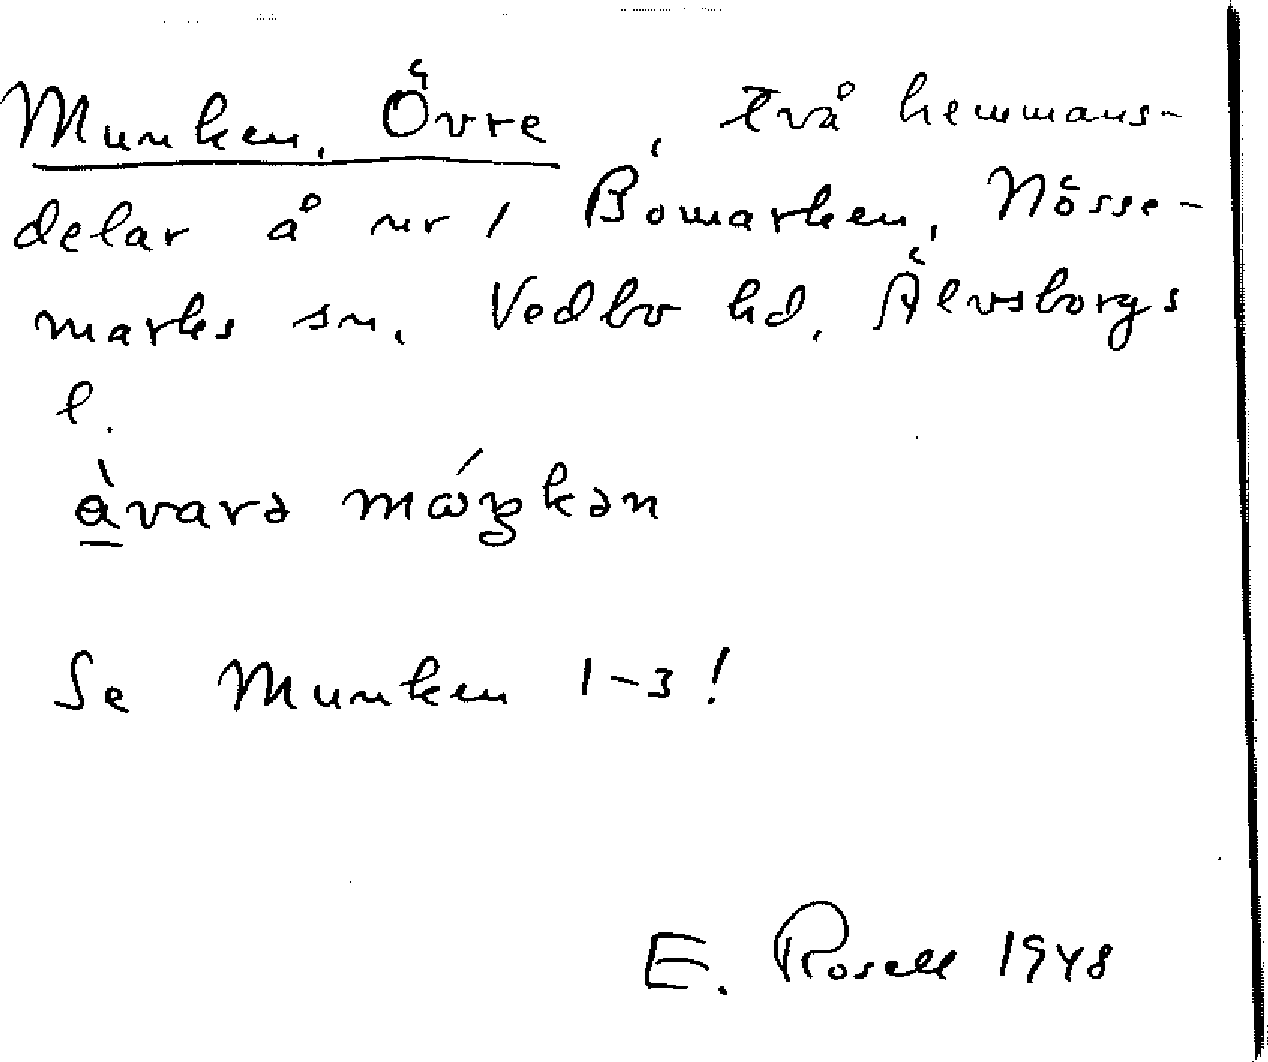 Munken, Övre, två hemmans-
delar å nr 1 Bömarken, Nösse-
marks sn, Vedbo hd, Älvsborgs
l.
Se Munken 1-3!
E. Rosell 1948